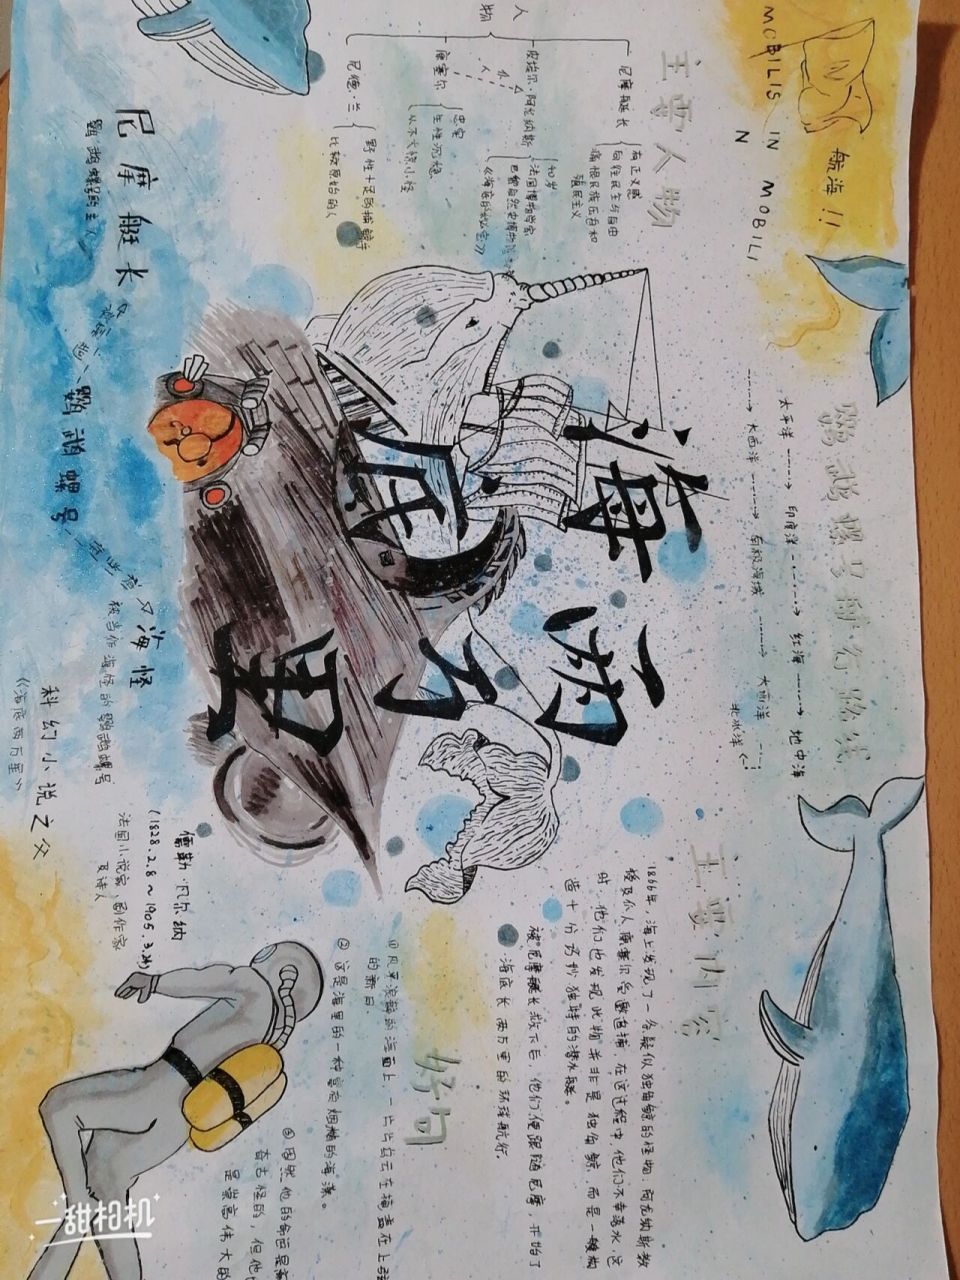 MOBILIS IN MOBILI,
N
航海!!
主要人物
人物
尼摩艇长
有正义感
向往民主与自由
痛恨民族压迫和
殖民主义
皮埃尔·阿龙纳斯
40岁
法国博物学家
《海底的秘密》
仆人
康塞尔
忠实
生性沉稳
从不大惊小怪
尼德·兰
野性十足的捕鲸手
比较原始的人
尼摩艇长
鹦鹉螺号的主人
鹦鹉螺号
海怪
被当作海怪的鹦鹉螺号
科幻小说之父
《海底两万里》
儒勒·凡尔纳
(1828.2.8~1905.3.24)
法国小说家、剧作家
及诗人
海底两万里
鹦鹉螺号航行路线
太平洋 印度洋 红海 地中海
大西洋 南极海域 大西洋
北冰洋
主要内容
1866年,海上发现了一条疑似独角鲸的怪物,阿龙纳斯教
授及仆人康塞尔受邀追捕,在这过程中,他们不幸落水,这
时,他们也发现此物并非是独角鲸,而是一艘构
造十分巧妙独特的潜水艇。
被尼摩艇长救下后,他们便跟随尼摩,开始了
海底长两万里的环球航行。
好句
①风平浪静的海面上,一片片乌云在掩盖在上
的新日
②这是海里的一种富有烟草的海藻。
是崇高伟大的
一甜相机